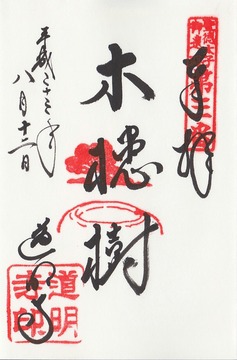 奉拝
木槵樹
道明寺
平成二十三年
八月十二日
道明
寺印